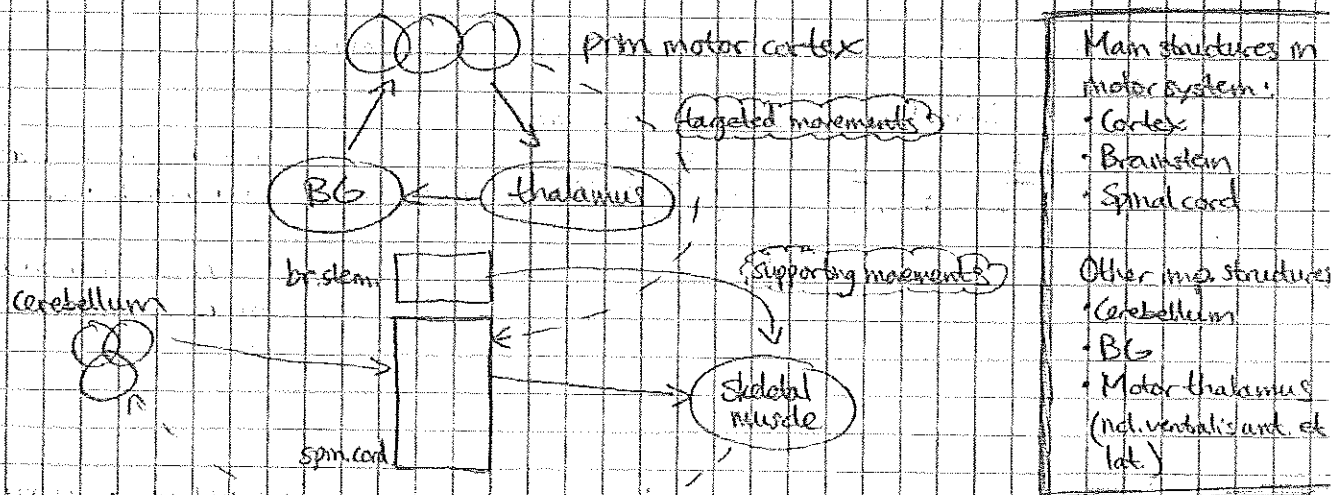 prim motor cortex
targeted movements
BG
thalamus
br.stem
supporting movements
cerebellum
skeletal
muscle
spin.cord
Main structures in
motor system:
• Cortex
• Brainstem
• Spinal cord
Other imp. structures
• Cerebellum
• BG
• Motor thalamus
(ncl. ventralis ant. et
lat.)